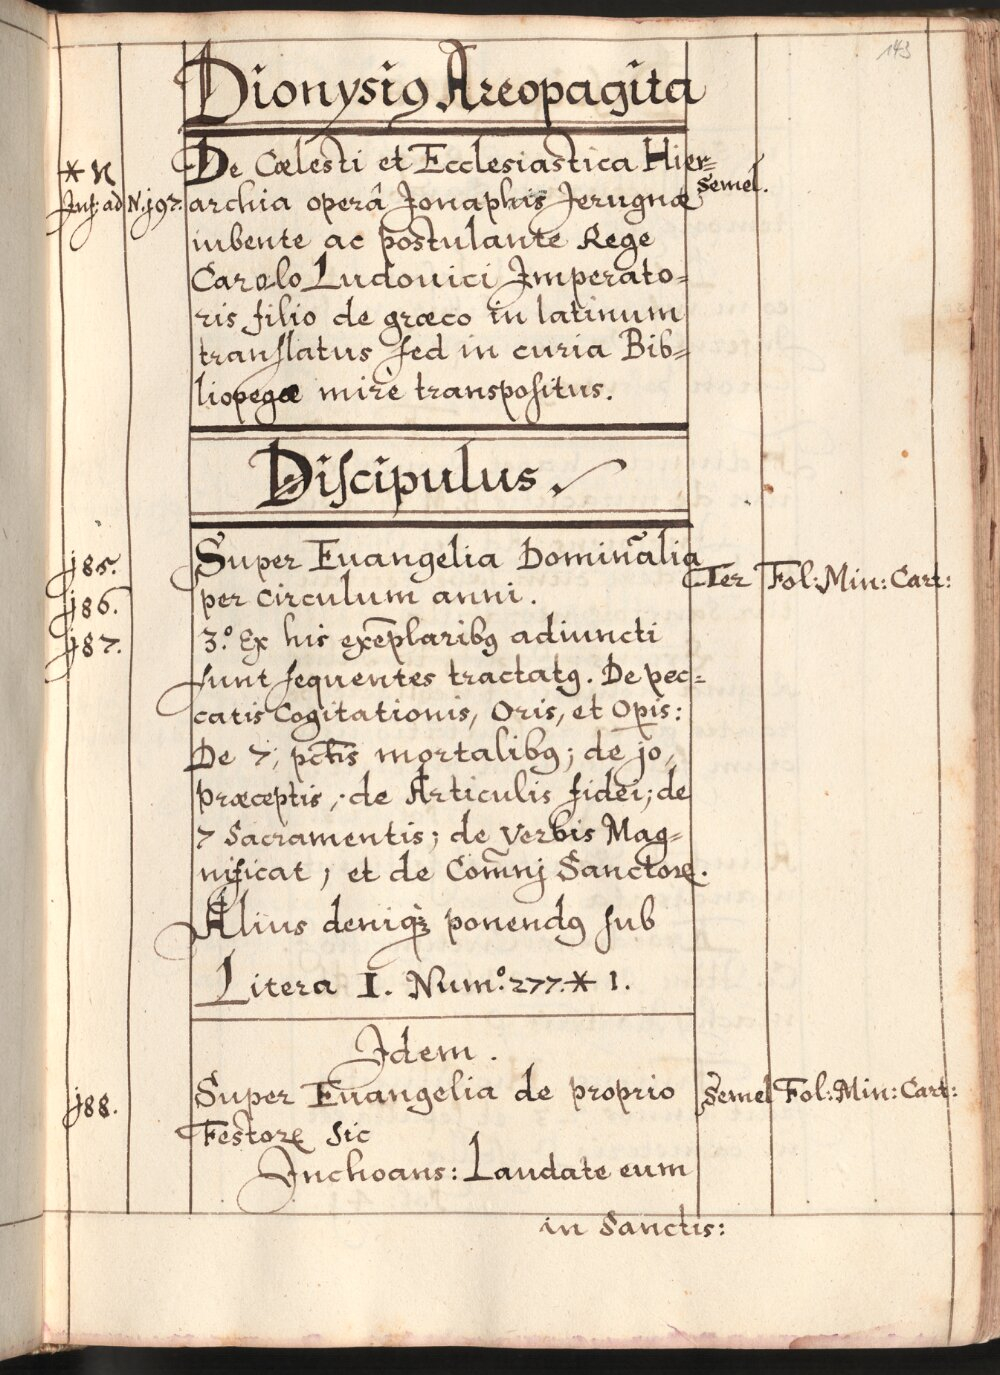 143
Dionysiꝰ Areopagita
* N
Inf: ad N. j97.
De Cœlesti et Ecclesiastica Hier-
semel.
archia operâ Jonaphis Jerugnæ
iubente ac postulante Rege
Carolo Ludouici Imperato=
ris filio de græco in latinum
tranſlatus ſed in curia Bib=
liopegæ mirè transpoſitus.
Diſcipulus.
j85.
Super Euangelia Domin̄alia
Ter Fol: Min: Cart:
j86.
per circulum anni.
j87.
3.º Ex his exēplaribꝰ adiuncti
ſunt ſequentes tractatꝰ. De pec=
catis Cogitationis, Oris, et Opis:
De 7; pctīs mortalibꝰ; de jo,
præceptis, de Articulis fidei; de
7 Sacramentis; de verbis Mag=
nificat, et de Com̄nj Sanctorꝝ.
Alius deniqꝫ ponendꝰ ſub
Litera I. Num:º 277.* 1.
Idem.
j88.
Super Euangelia de proprio
Semel Fol: Min: Cart:
Festorꝝ ſic
Inchoans: Laudate eum
in Sanctis: